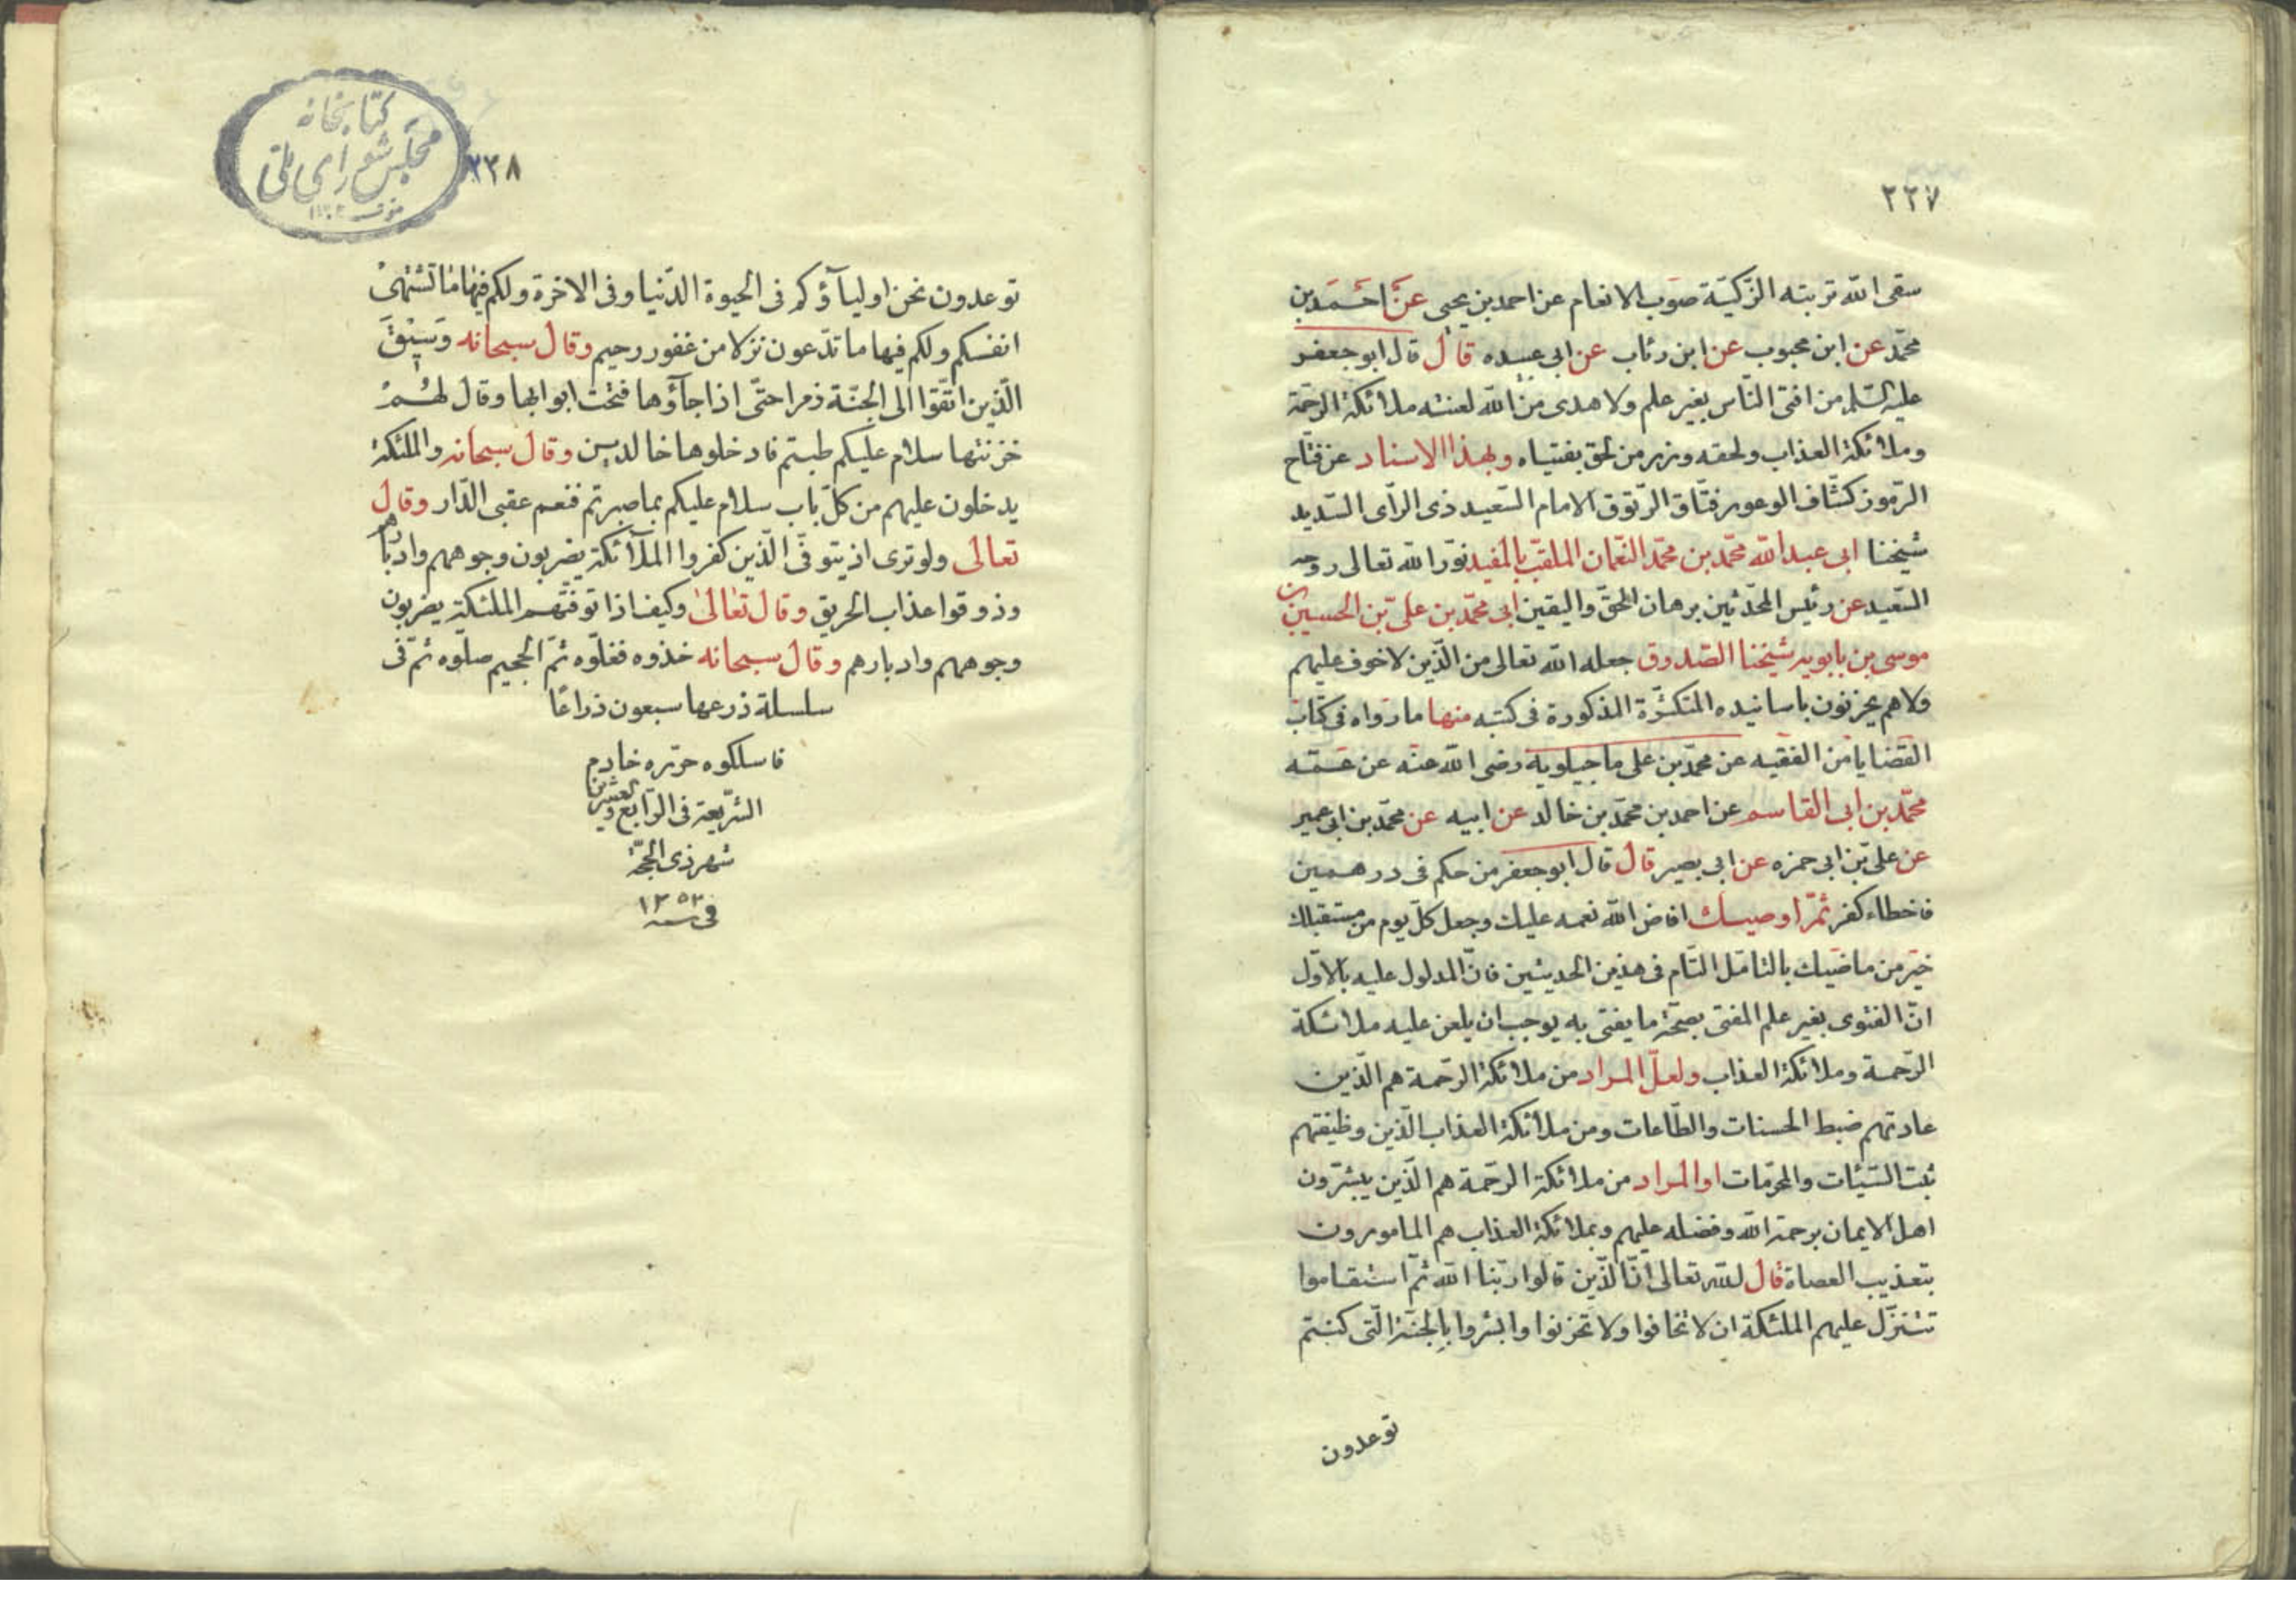 ٢٢٧
سقى الله تربته الزكيّة صوب الانعام عن احمد بن يحيى عن احمد بن
محمّد عن ابن محبوب عن ابن رئاب عن ابى عبيده قال قال ابو جعفر
عليه السّلم من افتى النّاس بغير علم ولا هدى من الله لعنته ملائكة الرحمة
وملائكة العذاب ولحقه وزر من لحق بفتياه وبهذا الاسناد عن فتاح
الرّموز كشّاف الوعور فتّاق الرّتوق الامام السّعيد ذى الرّاى السّديد
شيخنا ابى عبد الله محمّد بن محمّد النّعمان الملقّب بالمفيد نوّر الله تعالى روحه
السّعيد عن رئيس المحدّثين برهان الحقّ واليقين ابى محمّد بن علىّ بن الحسين بن
موسى بن بابويه شيخنا الصّدوق جعله الله تعالى من الّذين لا خوف عليهم
ولا هم يحزنون باسانيده المتكثّرة المذكورة فى كتبه منها ما رواه فى كتاب
القضايا من الفقيه عن محمّد بن على ماجيلويه رضى الله عنه عن عمّه
محمّد بن ابى القاسم عن احمد بن محمّد بن خالد عن ابيه عن محمّد بن ابى عمير
عن علىّ بن ابى حمزه عن ابى بصير قال قال ابو جعفر من حكم فى درهمين
فاخطاء كفر ثمّ اوصيك افاض الله نعمه عليك وجعل كلّ يوم من مستقبلك
خير من ماضيك بالتامّل التّام فى هذين الحديثين فانّ المدلول عليه بالاوّل
انّ الفتوى بغير علم المفتى بصحّة ما يفتى به يوجب ان يلعن عليه ملائكة
الرّحمة وملائكة العذاب ولعلّ المراد من ملائكة الرّحمة هم الّذين
عادتهم ضبط الحسنات والطّاعات ومن ملائكة العذاب الّذين وظيفتهم
ثبت السّيّئات والمحرّمات او المراد من ملائكة الرّحمة هم الّذين يبشّرون
اهل الايمان برحمة الله وفضله عليهم وبملائكة العذاب هم المامورون
بتعذيب العصاة قال لله تعالى انّ الّذين قالوا ربّنا الله ثمّ استقاموا
تتنزّل عليهم الملئكة ان لا تخافوا ولا تحزنوا وابشروا بالجنّة الّتى كنتم
توعدون
٢٢٨
كتابخانه
مجلس شوراى ملّى
توعدون نحن اولياؤكم فى الحيوة الدّنيا وفى الاخرة ولكم فيها ما تشتهى
انفسكم ولكم فيها ما تدّعون نزلا من غفور رحيم وقال سبحانه وسيق
الّذين اتّقوا الى الجنّة ذمرا حتّى اذا جاؤها فتحت ابوابها وقال لهم
خزنتها سلام عليكم طبتم فادخلوها خالدين وقال سبحانه والملئكة
يدخلون عليهم من كلّ باب سلام عليكم بما صبرتم فنعم عقبى الدّار وقال
تعالى ولو ترى اذ يتوفّى الّذين كفروا الملآئكة يضربون وجوههم وادبارهم
وذوقوا عذاب الحريق وقال تعالى وكيف اذا توفّتهم الملئكة يضربون
وجوههم وادبارهم وقال سبحانه خذوه فغلّوه ثمّ الجحيم صلوه ثمّ فى
سلسلة ذرعها سبعون ذراعًا
فاسلكوه حرّره خادم
الشّريعة فى الرّابع والعشرين
شهر ذى الحجّة
فى سنه ١٣٥٣